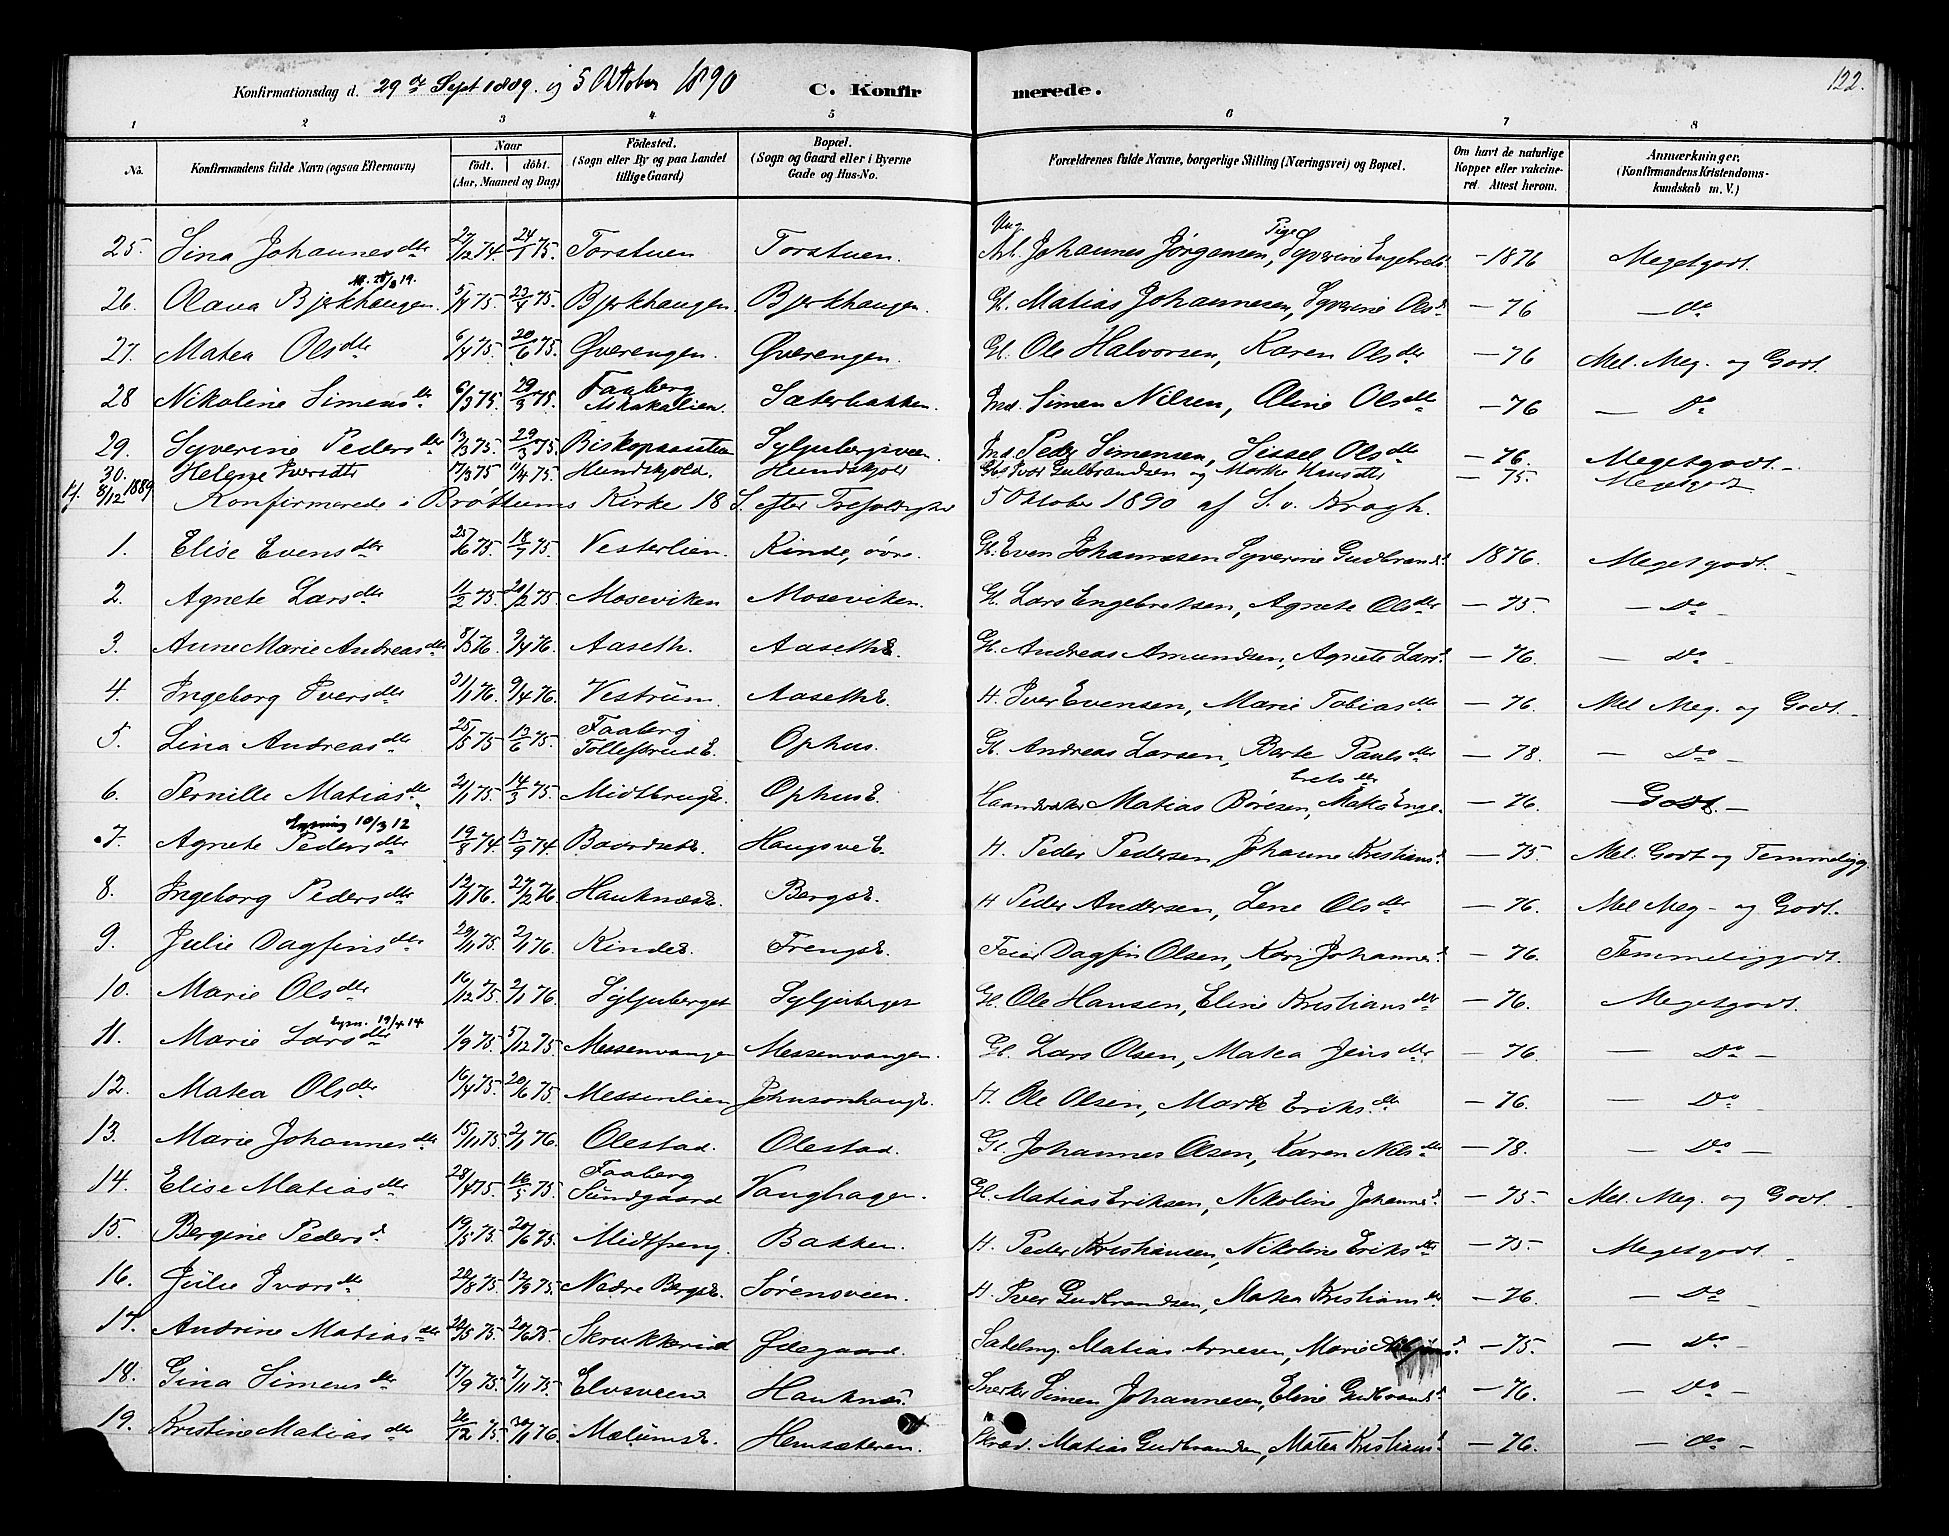 122.
Konfirmationsdag d. 29de Sept 1889. og 5 Oktober 1890 C. Konfirmerede.
1 2 3 4 5 6 7 8
No. Konfirmandens fulde Navn (ogsaa Efternavn) Naar födt. döbt. (Aar, Maaned og Dag) Födested. (Sogn eller By og paa Landet tillige Gaard) Bopæl. (Sogn og Gaard eller i Byerne Gade og Hus-No. Forældrenes fulde Navne, borgerlige Stilling (Næringsvei) og Bopæl. Om havt de naturlige Kopper eller vakcineret. Attest herom. Anmærkninger. (Konfirmandens Kristendomskundskab m. V.)
25. Lina Johannesdtr 27/12 74 24/1 75. Torstuen Torstuen. Ung Arb. Johannes Jörgensen, Pige Syverine Engebrets. - 1876 Megetgodt.
26. Olava Bjerkhaugen 5/4 75. 23/4 75. Bjerkhaugen. Bjerkhaugen. Gl. Matias Johannesen, Syverine Olsd. - 76 - Do
27. Matea Olsdtr 6/4 75. 20/6 75. Qværengen. Qværengen. Gl. Ole Halvorsen, Karen Olsdtr - 76 Mel. Meg. og Godt.
28 Nikoline Simensdtr 6/3 75. 29/3 75. Faaberg Sæterbakken. Ind. Simen Nilsen, Eline Olsdtr - 76 - Do
29. Syverine Pedersdtr 13/3 75. 29/3 75. Syljubergsveen. Ind. Peder Simensen, Sissel Olsdtr - 76. Megetgodt. -
30. Helene Iversdtr 17/3 75 11/4 75. Hundskjold. Hundskjold Gbr. Iver Gulbrandsen og Marthe Hansdtr - 75. Megetgodt
Kf. 8/12 1889 Konfirmerede i Brøttums Kirke 18 S. efter Trefoldighed 5 Oktober 1890 af S. v. Krogh.
1. Elise Evensdtr 25/6 75. 18/7 75. Vesterlien. Kinde, övre. Gl. Even Johannesen Syverine Gudbrandsd. 1876. Megetgodt. -
2. Agnete Larsdtr 11/2 75. 20/2 75. Moseviken Moseviken. Gl. Lars Engebretsen, Agnete Olsdtr - 75. - Do -
3. Anne Marie Andreasdtr 8/3 76. 9/4 76. Aaseth. AasethE. Gl. Andreas Amundsen, Agnete Larsd. - 76. - Do -
4. Ingeborg Iversdtr 31/1 76. 9/4 76. Vestrum. AasethE. H. Iver Evensen, Marie Tobiasdtr - 76. Mel Meg. og Godt. -
5. Lina Andreasdtr 25/5 75 13/6 75. Faaberg TollefsrudE. Ophus. Gl. Andreas Larsen, Berte Paulsdtr - 78. - Do -
6. Pernille Matiasdtr 21/1 75. 14/3 75. MidtbrugE. OphusE. Haandverker Matias Böresen, Matea Engebretsdtr - 76. - Godt. -
7. Agnete Pedersdtr Lysning 10/3 12 19/8 74. 13/9 74. BaardsetE. HaugsveE. H. Peder Pedersen, Johanne Kristiansd. - 75. Mel. Godt og Temmeligg.
8. Ingeborg Pedersdtr 12/1 76. 27/2 76. HauknæsE. BergsE. H Peder Andersen, Lene Olsdtr - 76. Mel Meg - og Godt. -
9. Julie Dagfinsdtr 29/11 75. 2/1 76. KindeE. FrengsE. Feier Dagfin Olsen, Kari Johannesd. - 76. Temmeliggodt.
10. Marie Olsdtr 16/12 75. 2/1 76. Syljuberget Syljuberget Gl. Ole Hansen, Eline Kristiansdtr - 76. Megetgodt.
11. Marie Larsdtr Lysn. 19/4 14 1/9 75. 5/12 75. Messenvangen Messenvangen. Gl. Lars Olsen, Matea Jensdtr - 76. - Do -
12. Matea Olsdtr 16/4 75. 20/6 75. Messenlien JohnsonhaugE. H. Ole Olsen, Marte Eriksdtr - 76. - Do -
13. Marie Johannesdtr 15/11 75. 2/1 76. Olestad. Olestad. Gl. Johannes Olsen, Karen Nilsdtr - 78. - Do -
14. Elise Matiasdtr 28/4 75. 16/5 75. Faaberg Sundgaard Vanghagen. Gl. Matias Eriksen, Nikoline Johannesd. - 75. Mel. Meg. og Godt. -
15. Bergine Pedersd. 19/5 75. 20/6 75. Midtfreng. Bakken. H. Peder Kristiansen, Nikoline Eriksdtr - 75. Megetgodt. -
16. Julie Iversdtr 22/8 75. 12/9 75. Nedre BergsE. Sörensveen. H. Iver Gudbrandsen, Matea Kristiansdtr - 76. - Do -
17. Andrine Matiasdtr 22/5 75. 20/6 75. Skrukkerud Ödegaard. Sadelmg. Matias Arnesen, Marie - 75. - Do -
18. Gina Simensdtr 17/9 75. 7/11 75. Elvsveen Hauknæs. Snekker Simen Johannesen, Eline Gudbrandsd. - 76. - Do -
19. Kristine Matiasdtr 26/12 75. 30/1 76. MælumsE. Hemsæteren. Skræd. Matias Gudbrandsen, Matea Kristiansd. - 76. - Do -